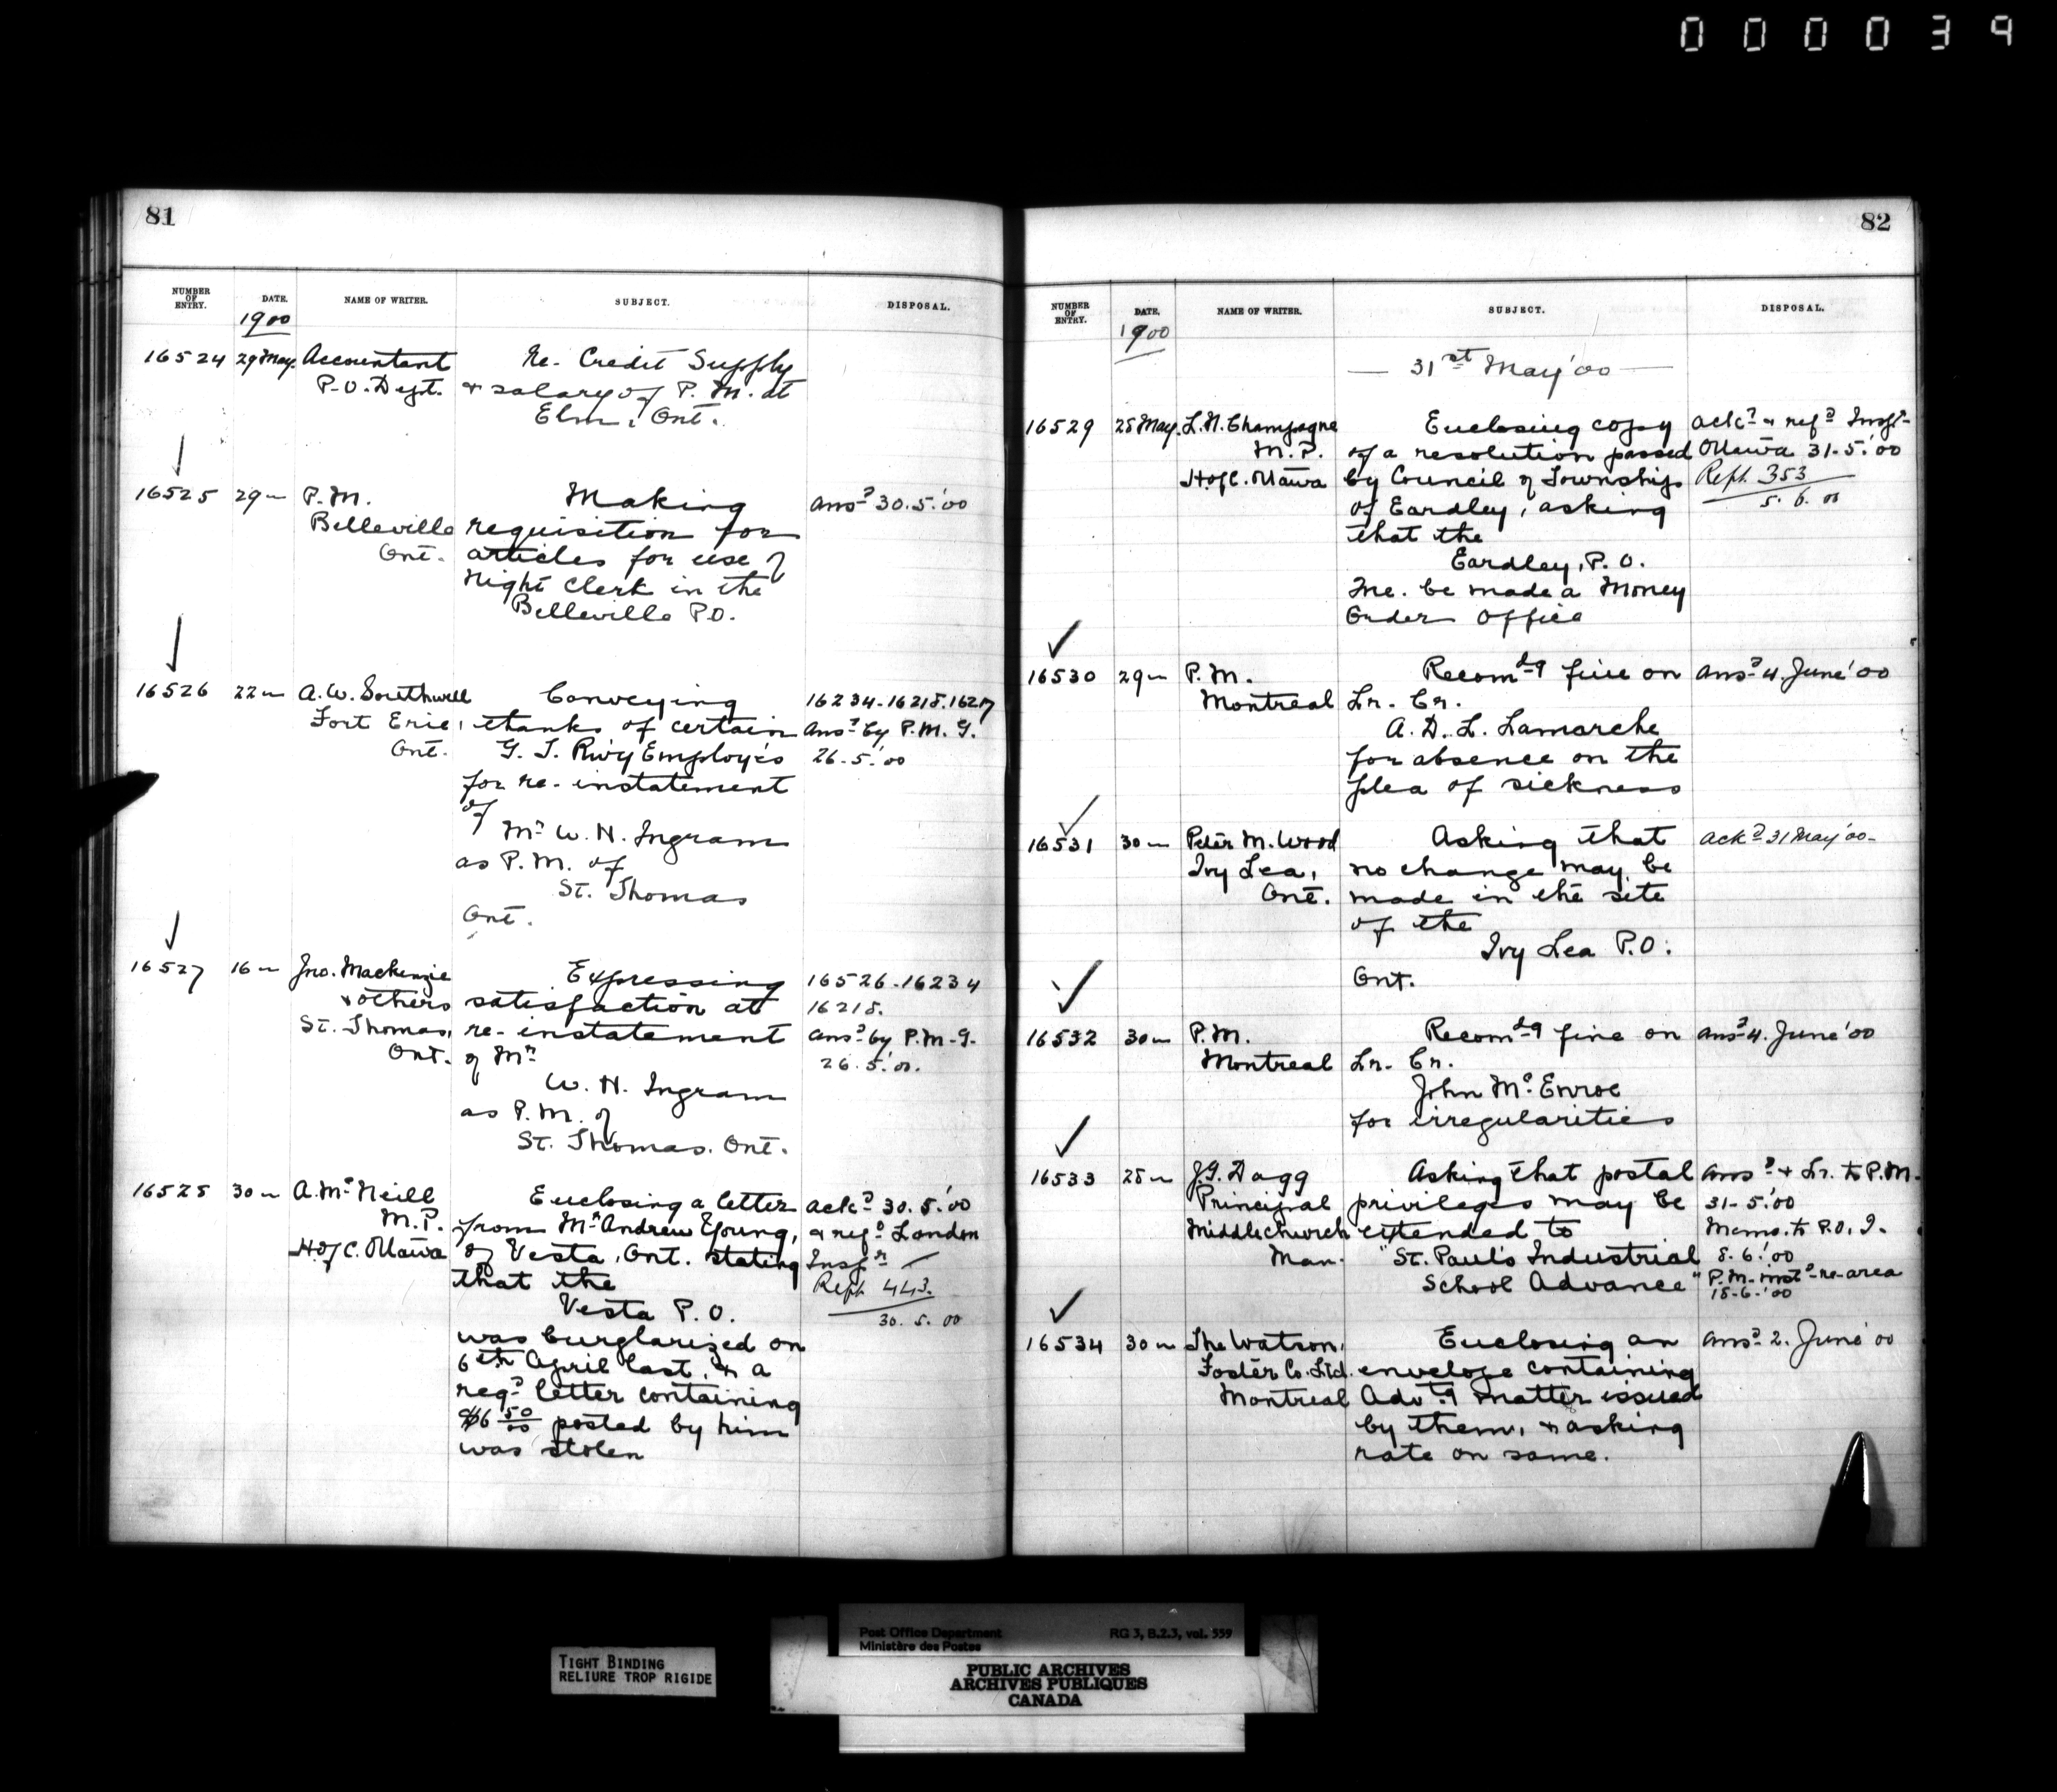 000039
81
NUMBER OF ENTRY. DATE. NAME OF WRITER. SUBJECT. DISPOSAL.
1900
16524 29 May. Accountant Re- Credit Supply
P.O. Dept. & salary of P. M. at
Elm, Ont.
16525 29 " P.M. Making ansd 30.5.'00
Belleville requisition for
Ont. articles for use of
Night Clerk in the
Belleville P.O.
16526 22 " A. W. Southwell Conveying 16234-16218.16217
Fort Erie, thanks of certain ansd by P.M.G.
Ont. G. T. Rwy Employés 26-5.'00
for re-instatement
of
Mr W. H. Ingram
as P.M. of
St. Thomas
Ont.
16527 16 " Jno. Mackenzie Expressing 16526-16234
& others satisfaction at 16218.
St. Thomas, re-instatement ansd by P.M.G.
Ont. of Mr 26.5.'00.
W. H. Ingram
as P.M. of
St. Thomas. Ont.
16528 30 " A. McNeill Enclosing a letter ackd 30.5.'00
M.P. from Mr Andrew Young, & refd London
H. of C. Ottawa of Vesta, Ont. stating Inspr
that the Rept. 443.
Vesta P.O. 30. 5. 00
was burglarized on
6th April last, & a
regd letter containing
$6 50/00 posted by him
was stolen
82
NUMBER OF ENTRY. DATE. NAME OF WRITER. SUBJECT. DISPOSAL.
1900
— 31st May '00 —
16529 28 May. L. N. Champagne Enclosing copy ackd & refd Inspr
M.P. of a resolution passed Ottawa 31-5.'00
H. of C. Ottawa by Council of Township Rept. 353
of Eardley, asking 5. 6. 00
that the
Eardley, P.O.
Que. be made a Money
Order Office
16530 29 " P.M. Recomdg fine on ansd 4. June '00
Montreal Lr. Cr.
A. D. L. Lamarche
for absence on the
plea of sickness
16531 30 " Peter M. Wood Asking that ackd 31 May '00-
Ivy Lea, no change may be
Ont. made in the site
of the
Ivy Lea P.O.
Ont.
16532 30 " P.M. Recomdg fine on ansd 4. June '00
Montreal Lr. Cr.
John McEnroe
for irregularities
16533 28 " J. G. Dagg Asking that postal ansd & Lr. to P.M.
Principal privileges may be 31-5.'00
Middlechurch extended to Memo. to P.O.I.
Man. "St. Paul's Industrial 8-6.'00
School Advance" P.M. instd re area
18-6-'00
16534 30 " The Watson, Enclosing an ansd 2. June '00
Foster Co. Ltd. envelope containing
Montreal Advtg matter issued
by them, & asking
rate on same.
Post Office Department RG 3, B.2.3, vol. 559
Ministère des Postes
TIGHT BINDING
RELIURE TROP RIGIDE
PUBLIC ARCHIVES
ARCHIVES PUBLIQUES
CANADA